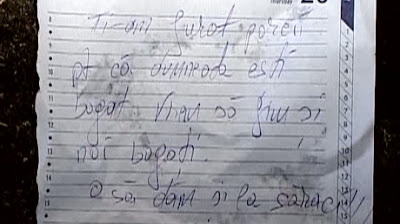 Ti-am furat porcii
pt că dumneata esti
bogat. Vrem să fim si
noi bogati.
O să dăm si la săraci!!